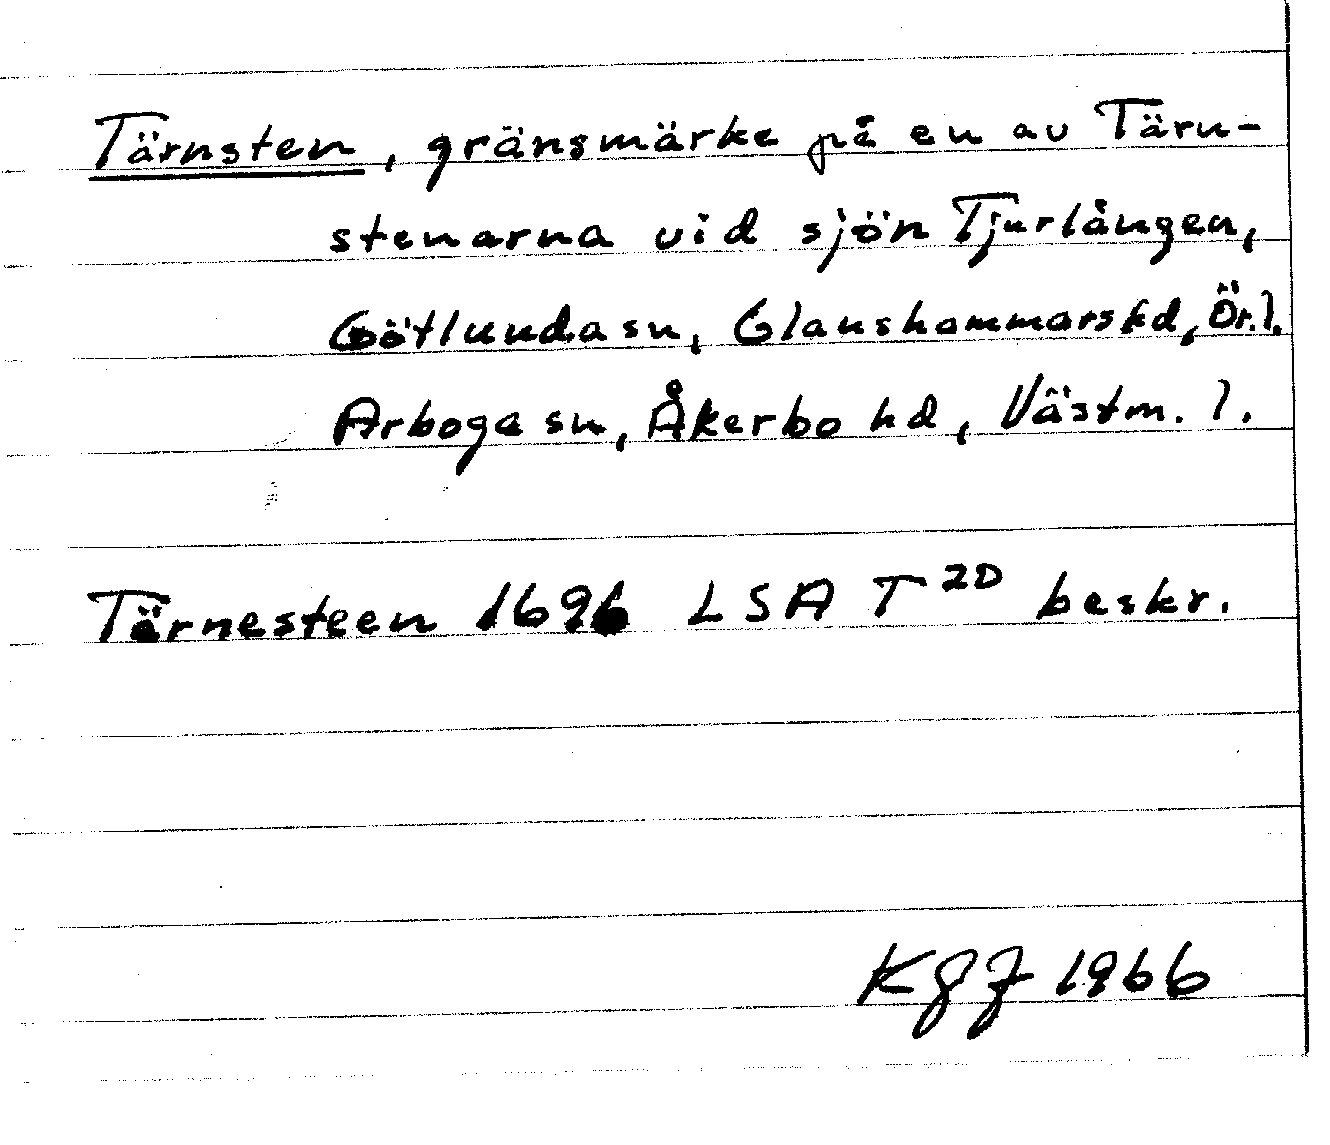 Tärnsten, gränsmärke på en av Tärn-
stenarna vid sjön Tjurlången,
Götlunda sn, Glanshammars hd, Ör. l.
Arboga sn, Åkerbo hd, Västm. l.
Tärnesteen 1696 LSA T 2D beskr.
KGJ 1966